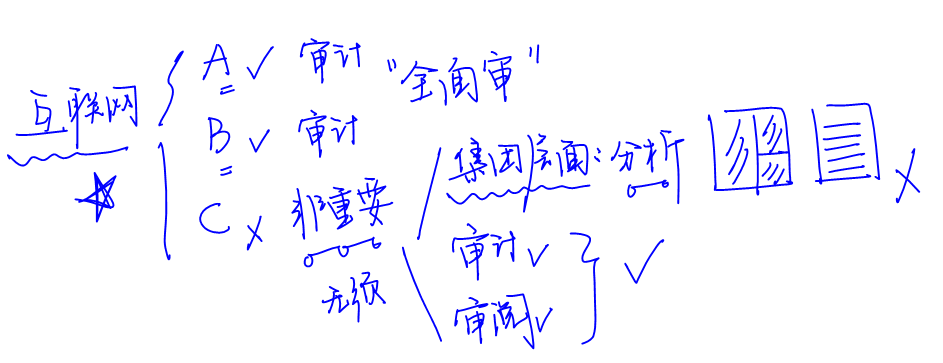 互联网
A ✓ 审计 "全面审"
B ✓ 审计
C × 非重要
无须
集团层面:分析 ×
审计 ✓
审阅 ✓
✓